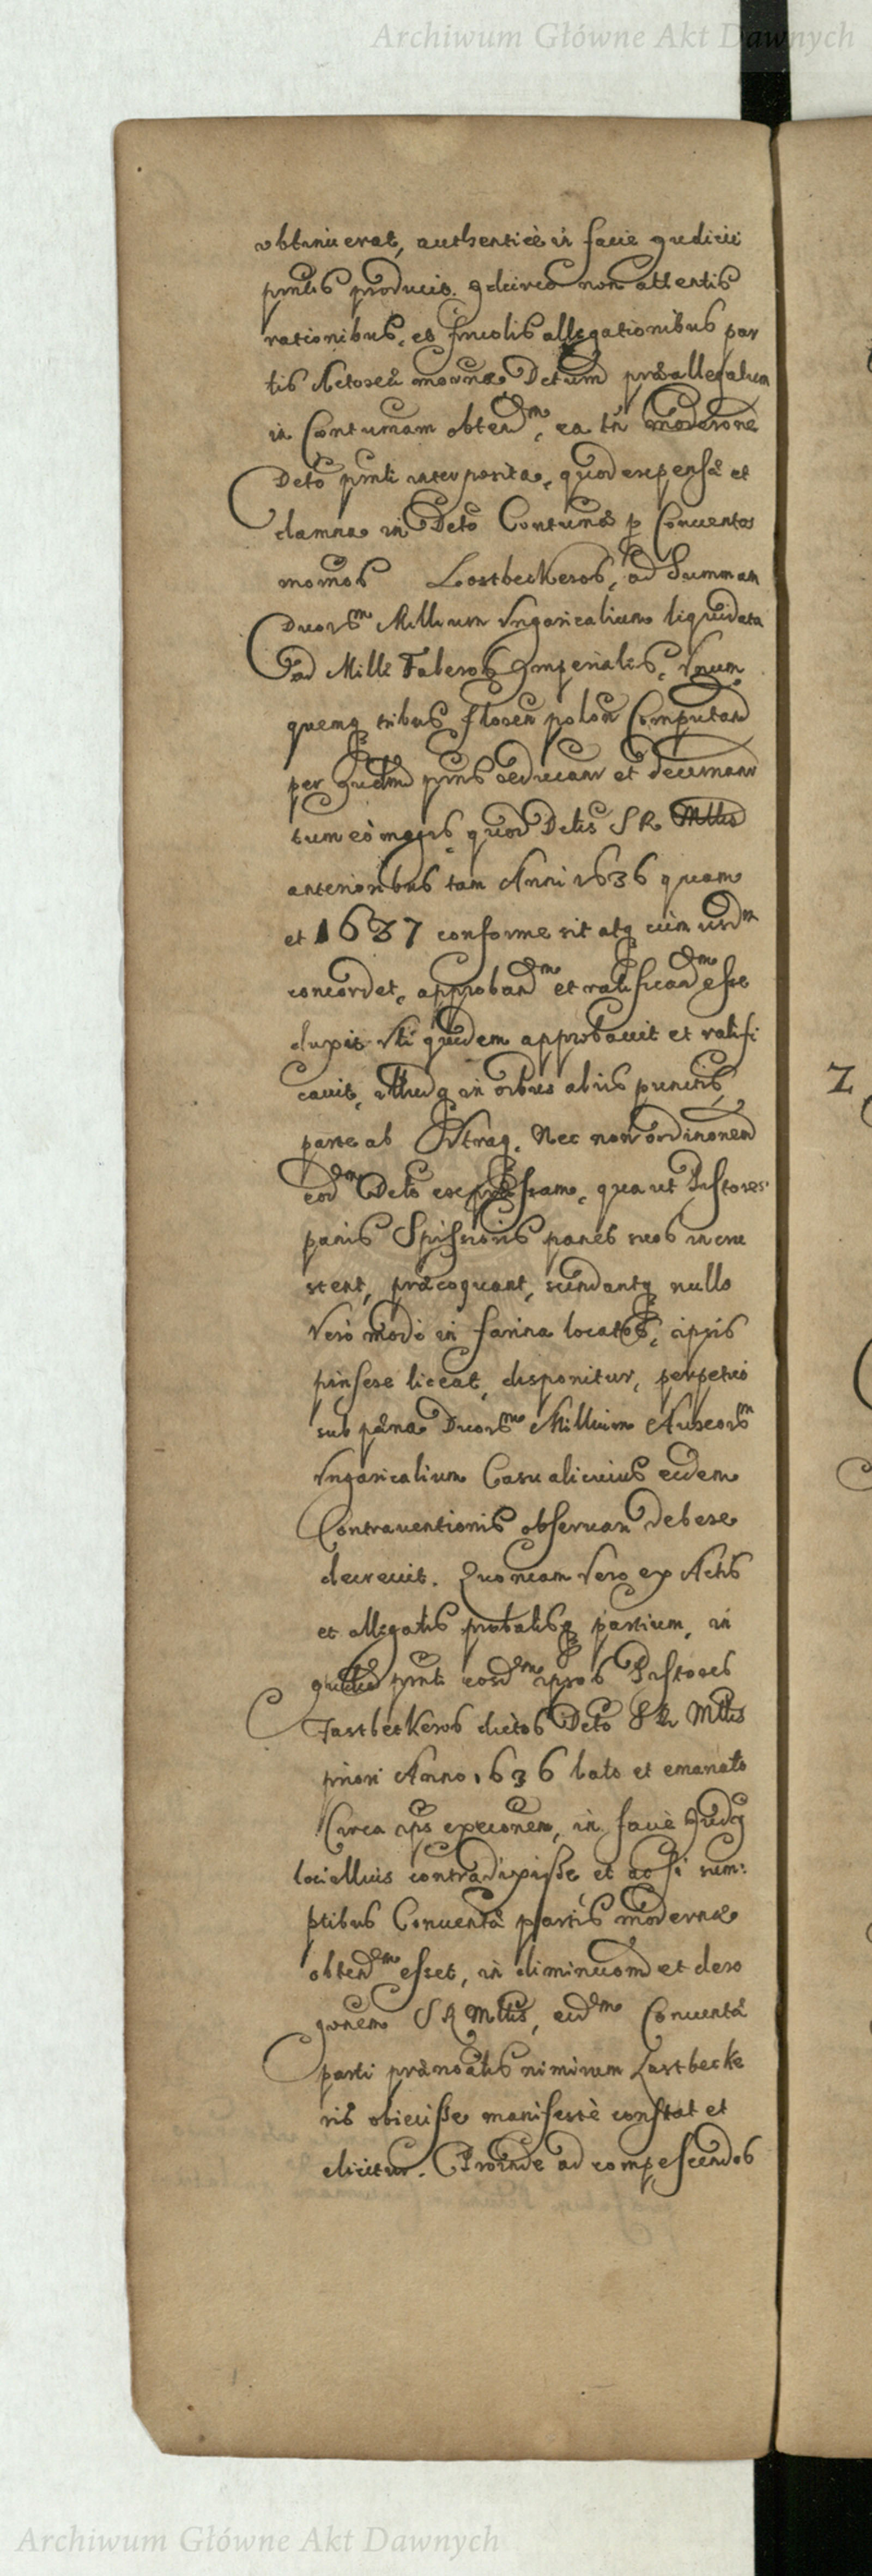 Archiwum Główne Akt Dawnych
obtinuerat, authenticè in facie Judicii
pntis producit. Idcirco non attentis
rationibus, et frivolis allegationibus par
tis Actoreæ modernæ Detum præallegatum
in Contumam obtendm, ea tn moderone
Deto pnti interposita, quod expensæ et
damna in Deto Contumæ p Conventos
mornos Lostbeckeros, ad Summam
Duorm Millium Ungaricalium liquidata
ad Mille Taleros Imperiales, Unum
quemq tribus floren polon Computan
per Judm pns reducant et decernant
tum eò magis quod Detis S R Mttis
anterioribus tam Anni 1636 quam
et 1637 conforme sit atq cum iisdm
concordet, approbandm et ratificandm esse
duxit Uti quidem approbavit et ratifi
cavit, illudq in oibus aliis punctis
parte ab Utraq. Nec non ordinonem
eodm Deto expressam, qua ut Pistores
panis Spissioris panes suos incru
stent, præcoquant, scindantq nullo
Vero modo in farina locatos, ipsis
pinsere liceat, disponitur, perpetuo
sub pæna Duorm Millium Aureorm
Ungaricalium Casu alicuius eidem
Contraventionis observari debere
decrevit. Quoniam Vero ex Actis
et allegatis probatisq partium, in
Juditio pnti eosdm ipsos Pistores
Fastbeckeros dictos Deto S R Mttis
priori Anno 1636 lato et emanato
Circa ips execonem, in facie Judy
loci illius contradixisse et ac si sum:
ptibus Conventæ partis modernæ
obtendm esset, in diminuom et dero
gonem S R Mttis, eidm Conventæ
parti prænoatis nimirum Lastbecke
ris obiecisse manifestè constat et
elicitur. Proinde ad compescendos
Z
Archiwum Główne Akt Dawnych